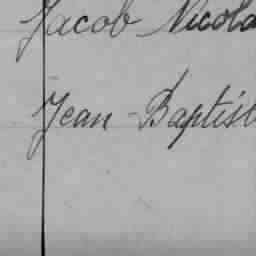 Jacob Nicola
Jean-Baptist